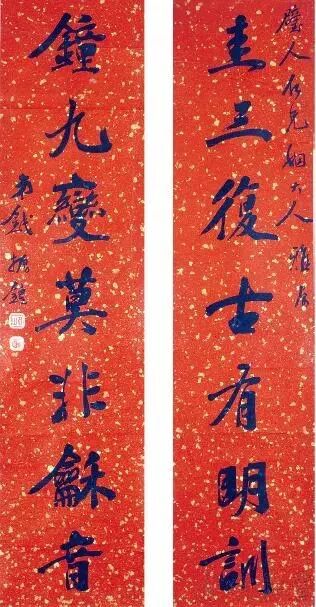 璧人仁兄姻大人 雅屬
圭三復古有明訓
鐘九變莫非龢音
弟錢振鍠